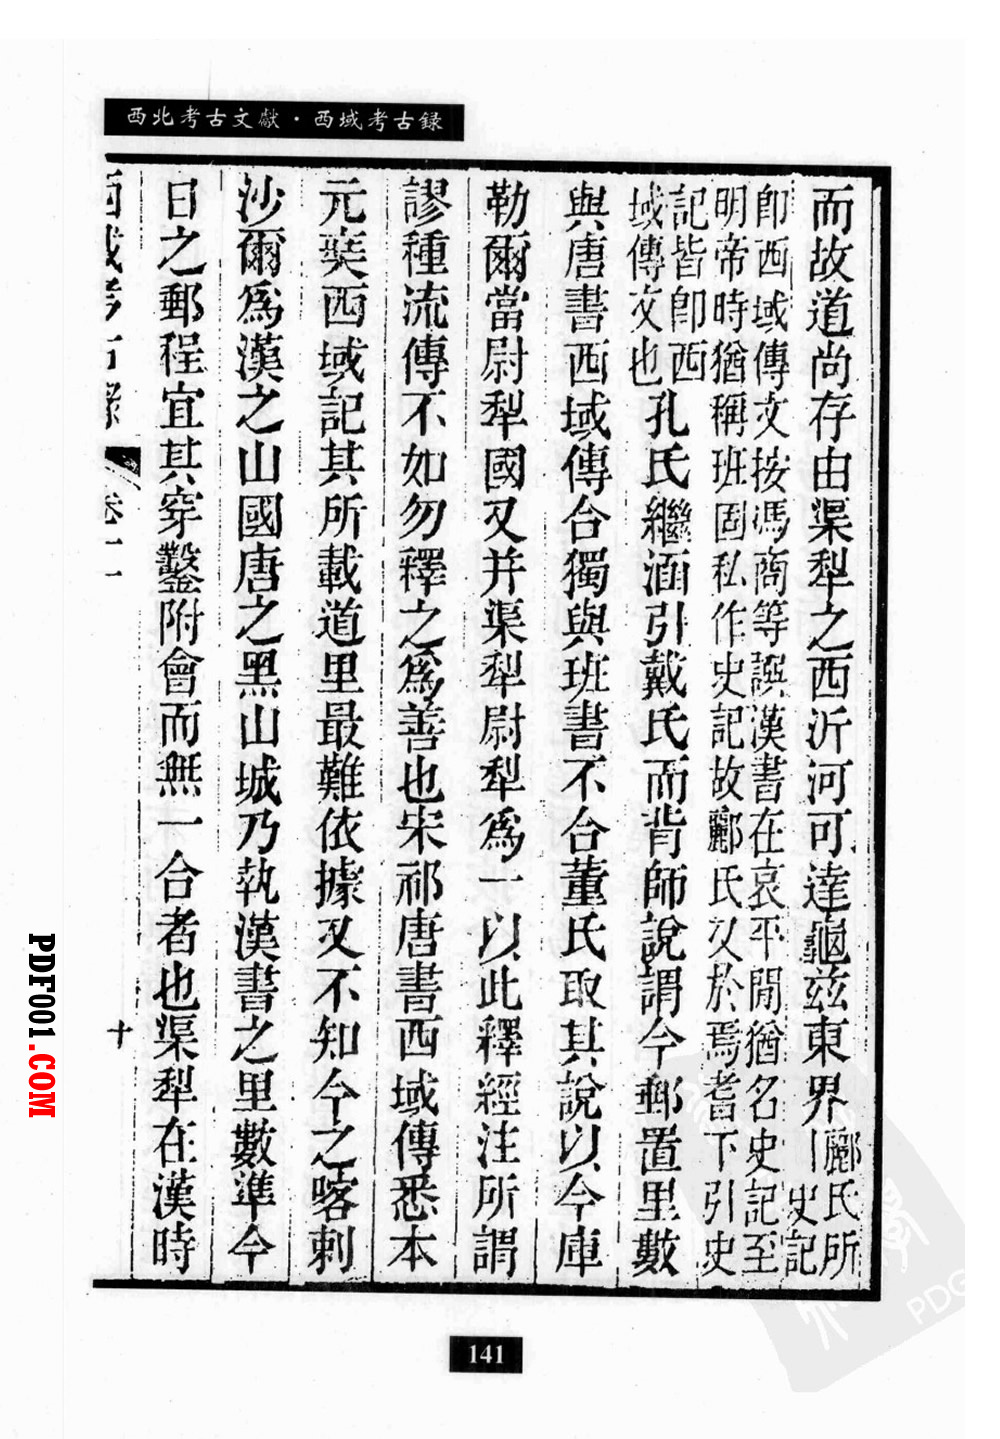 西北考古文獻·西域考古録
而故道尚存由渠犁之西沂河可達龜兹東界酈氏所引史記
卽西域傳文按馮商等誤漢書在哀平閒猶名史記至
明帝時猶稱班固私作史記故酈氏又於焉耆下引史
記皆卽西域傳文也孔氏繼涵引戴氏而背師說謂今郵置里數
與唐書西域傳合獨與班書不合董氏取其說以今庫
勒爾當尉犁國又并渠犁尉犁爲一以此釋經注所謂
謬種流傳不如勿釋之爲善也宋祁唐書西域傳悉本
元奘西域記其所載道里最難依據又不知今之喀剌
沙爾爲漢之山國唐之黑山城乃執漢書之里數準今
日之郵程宜其穿鑿附會而無一合者也渠犁在漢時
西域考古錄
卷十一
十
141
PDF001.COM
PDG